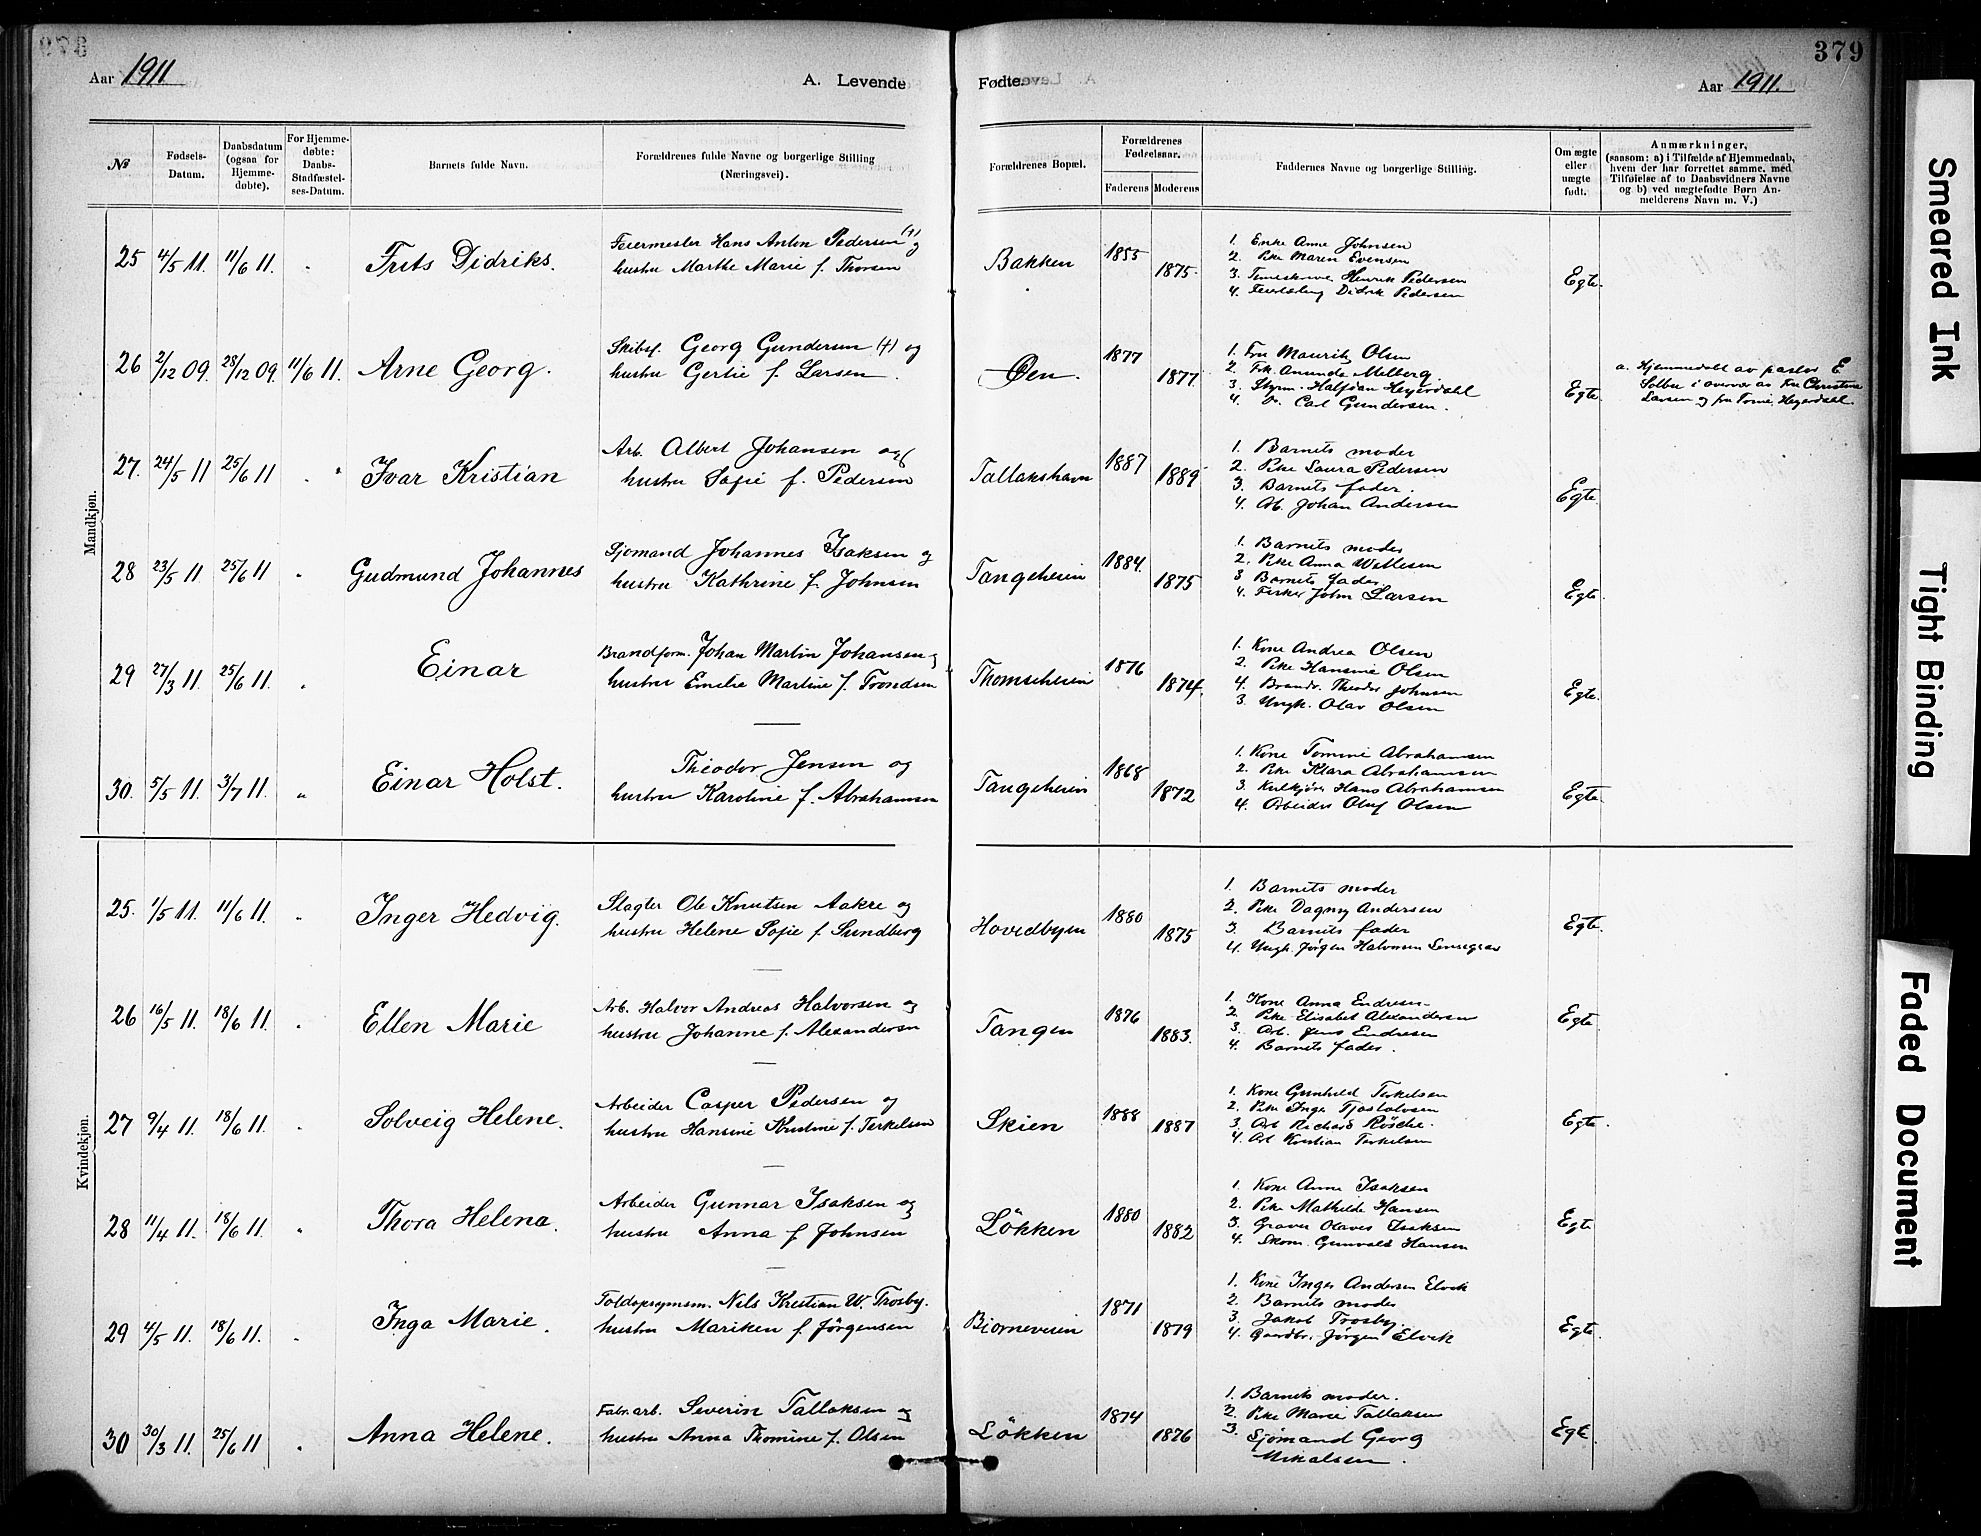 379
Aar 1911
A. Levende
Fødte.
Aar 1911.
№
Fødsels-Datum.
Daabsdatum (ogsaa for Hjemme-døbte).
For Hjemme-døbte: Daabs-Stadfæstel-ses-Datum.
Barnets fulde Navn.
Forældrenes fulde Navne og borgerlige Stilling (Næringsvei).
Forældrenes Bopæl.
Forældrenes Fødselsaar.
Faderens Moderens
Faddernes Navne og borgerlige Stilling.
Om ægte eller uægte født.
Anmærkninger,
(saasom: a) i Tilfælde af Hjemmedaab,
hvem der har forrettet samme, med
Tilføielse af to Daabsvidners Navne
og b) ved uægtefødte Børn An-
melderens Navn m. V.)
Mandkjøn.
25 4/5 11. 11/6 11. "
Frits Didriks.
Feiermester Hans Anton Pedersen (+) og
hustru Marthe Marie f. Thorsen
Bakken
1855
1875
1. Enke Anne Johnsen
2. Pike Maren Evensen
3. Henrik Pedersen
4. Didrik Pedersen
Egte.
26 2/12 09. 28/12 09. 11/6 11.
Arne Georg.
Skibsf. Georg Gundersen (+) og
hustru Gertie f. Larsen.
Øen.
1877
1877
1. Fru Mauritz Olsen
2. Frk. Anunde Melberg
3. Styrm. Halfdan Heyerdahl
4. Do. Carl Gundersen.
Egte
a. Hjemmedøbt av pastor E
Solbu i overvær av Fru Christine
Larsen og fru Heyerdahl.
27. 24/5 11 25/6 11 "
Ivar Kristian
Arb. Albert Johansen og
hustru Sofie f. Pedersen
Tallakshavn
1887
1889
1. Barnets moder
2. Pike Laura Pedersen
3. Barnets fader.
4. Ab. Johan Andersen
Egte
28 23/5 11 25/6 11 "
Gudmund Johannes
Sjömand Johannes Isaksen og
hustru Kathrine f. Johnsen
Tangeheien
1884.
1875
1. Barnets moder
2. Pike Anna Willesen
3 Barnets fader.
4. Fisker John Larsen
Egte.
29 27/3 11. 25/6 11. "
Einar
Brandform. Johan Martin Johansen og
hustru Emelie Martine f. Trondsen
Thomseheien
1876
1874.
1. Kone Andrea Olsen
2. Pike Hansine Olsen
4. Brandk. Theodor Johnsen
3. Ungk. Olav Olsen
Egte.
30. 5/5 11. 3/7 11. "
Einar Holst.
Theodor Jensen og
hustru Karoline f. Abrahamsen
Tangeheien
1868
1872
1. Kone Tomine Abrahamsen
2. Pike Klara Abrahamsen
3. Kulkjörer Hans Abrahamsen
4. Arbeider Oluf Olsen
Egte.
Kvindekjøn.
25. 1/5 11. 11/6 11. "
Inger Hedvig.
Slagter Ole Knutsen Aakre og
hustru Helene Sofie f. Sundberg
Hovedbyen
1880
1875
1. Barnets moder
2. Pike Dagny Andersen
3. Barnets fader
4. Ungk. Jörgen Halvorsen
Egte.
26 16/5 11. 18/6 11. "
Ellen Marie
Arb. Halvor Andreas Halvorsen og
hustru Johanne f. Alexandersen
Tangen
1876
1883.
1. Kone Anna Endresen
2. Pike Elisabet Alexandersen
3. Arb. Jens Endresen
4. Barnets fader.
Egte
27 9/4 11. 18/6 11. "
Solveig Helene.
Arbeider Casper Pedersen og
hustru Hansine Kristine f. Terkelsen
Skien
1888
1887
1. Kone Gunhild Terkelsen
2. Pike Inga Tjostolvsen
3. Arb Richard Rösche.
4. Arb Kristian Terkelsen
Egte.
28 11/4 11. 18/6 11. "
Thora Helena.
Arbeider Gunnar Isaksen og
hustru Anna f. Johnsen
Lökken
1880
1882
1. Kone Anne Isaksen
2. Pike Mathilde Hansen
3. Graver Olaves Isaksen
4. Skom. Gunvald Hansen
Egte
29 4/5 11. 18/6 11. "
Inga Marie.
Toldopsynsm. Nils Kristian W. Trosby.
hustru Mariken f. Jörgensen
Bjorneveien
1871
1879
1. Kone Inger Andersen Elvik
2. Barnets moder
3. Jakob Trosby.
4. Gaardbr. Jörgen Elvik
Egte.
30 30/3 11. 25/6 11 "
Anna Helene.
Fabr. arb. Severin Tallaksen og
hustru Anna Thomine f. Olsen
Lökken
1874
1876
1. Barnets moder.
2. Pike Marie Tallaksen
3. Sjömand Georg
Mikalsen.
Egte.
Smeared Ink
Tight Binding
Faded Document